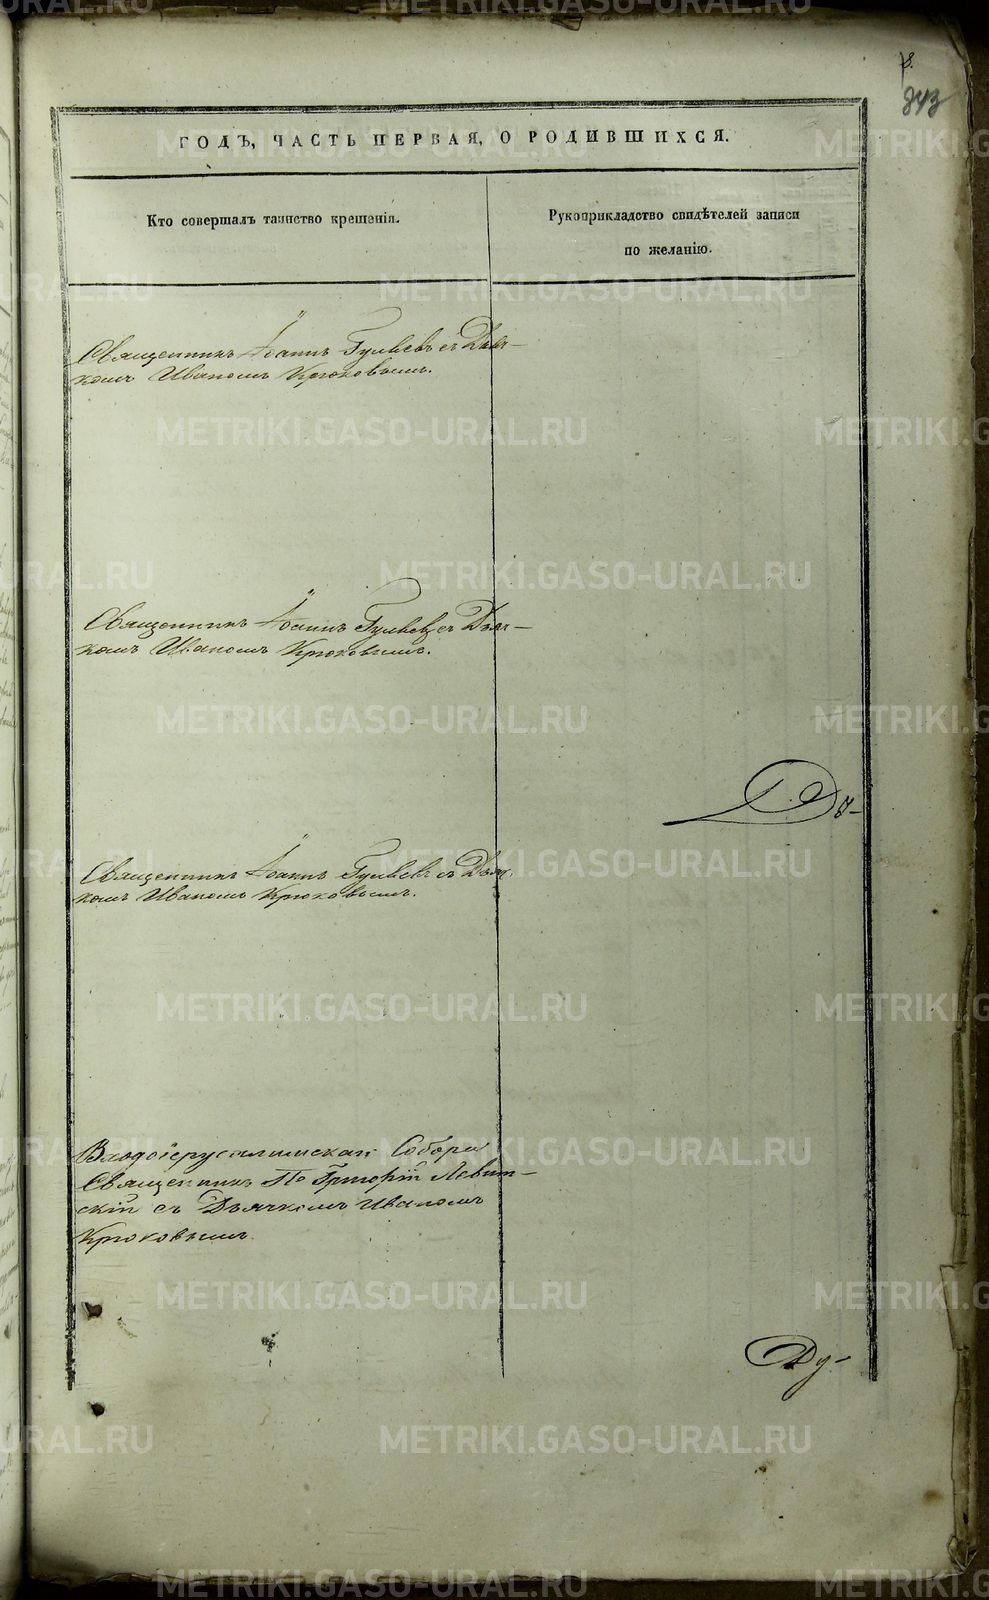 8.
343
ГОДЪ, ЧАСТЬ ПЕРВАЯ, О РОДИВШИХСЯ.
Кто совершалъ таинство крещенія.
Рукоприкладство свидѣтелей записи
по желанію.
Священникъ Іоаннъ Гуляевъ съ Дьяч-
комъ Иваномъ Крюковымъ.
Священникъ Іоаннъ Гуляевъ съ Дьяч-
комъ Иваномъ Крюковымъ.
Священникъ Іоаннъ Гуляевъ съ Дьяч-
комъ Иваномъ Крюковымъ.
Входоіерусалимскаго Собора
Священникъ Григорій Левит-
скій съ Дьячкомъ Иваномъ
Крюковымъ.
Ду-
METRIKI.GASO-URAL.RU